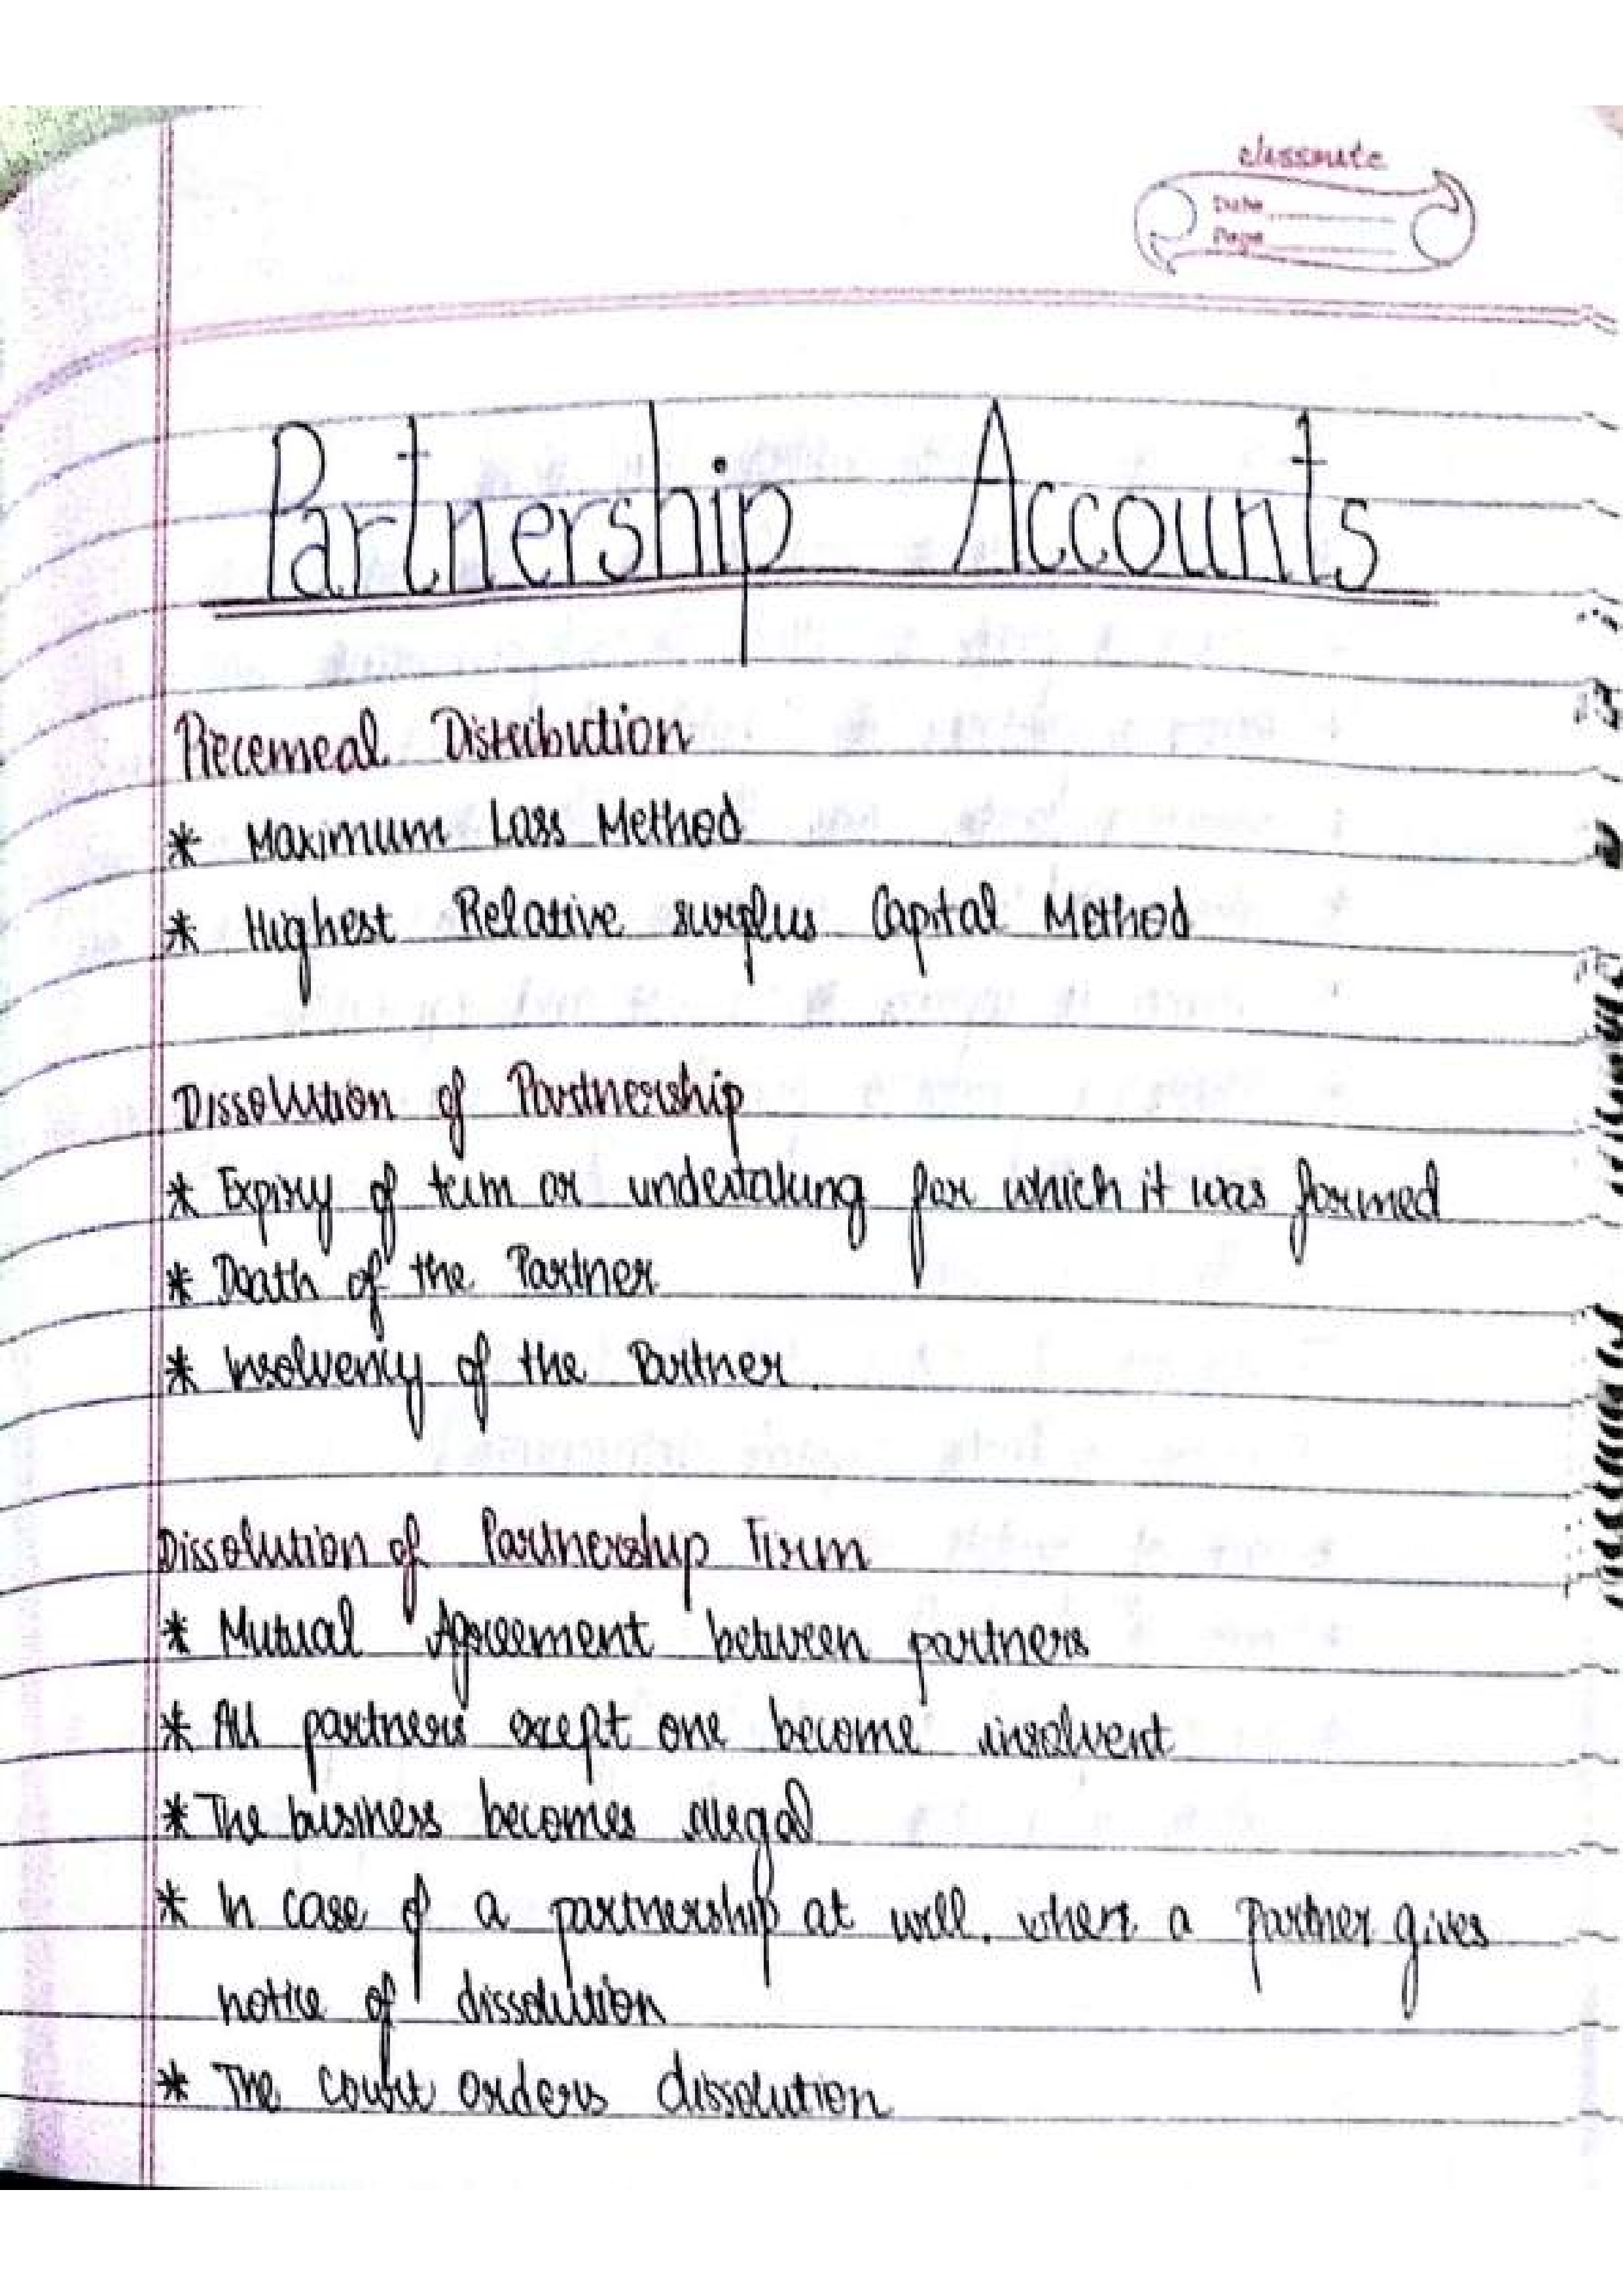 classmate
Date
Page
Partnership Accounts
Piecemeal Distribution
* Maximum Loss Method
* Highest Relative surplus Capital Method
Dissolution of Partnership
* Expiry of term or undertaking for which it was formed
* Death of the Partner
* Insolvency of the Partner
Dissolution of Partnership Firm
* Mutual Agreement between partners
* All partners except one become insolvent
* The business becomes illegal
* In case of a partnership at will, where a Partner gives
notice of dissolution
* The court orders dissolution